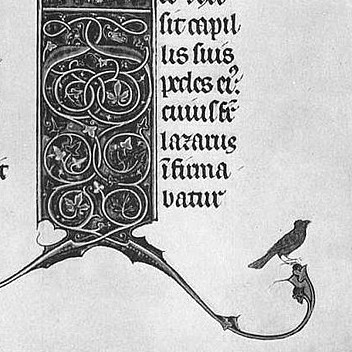 sit capil
lis suis
pedes eiꝰ.
cuius fr̄
lazarus
īfirma
batur